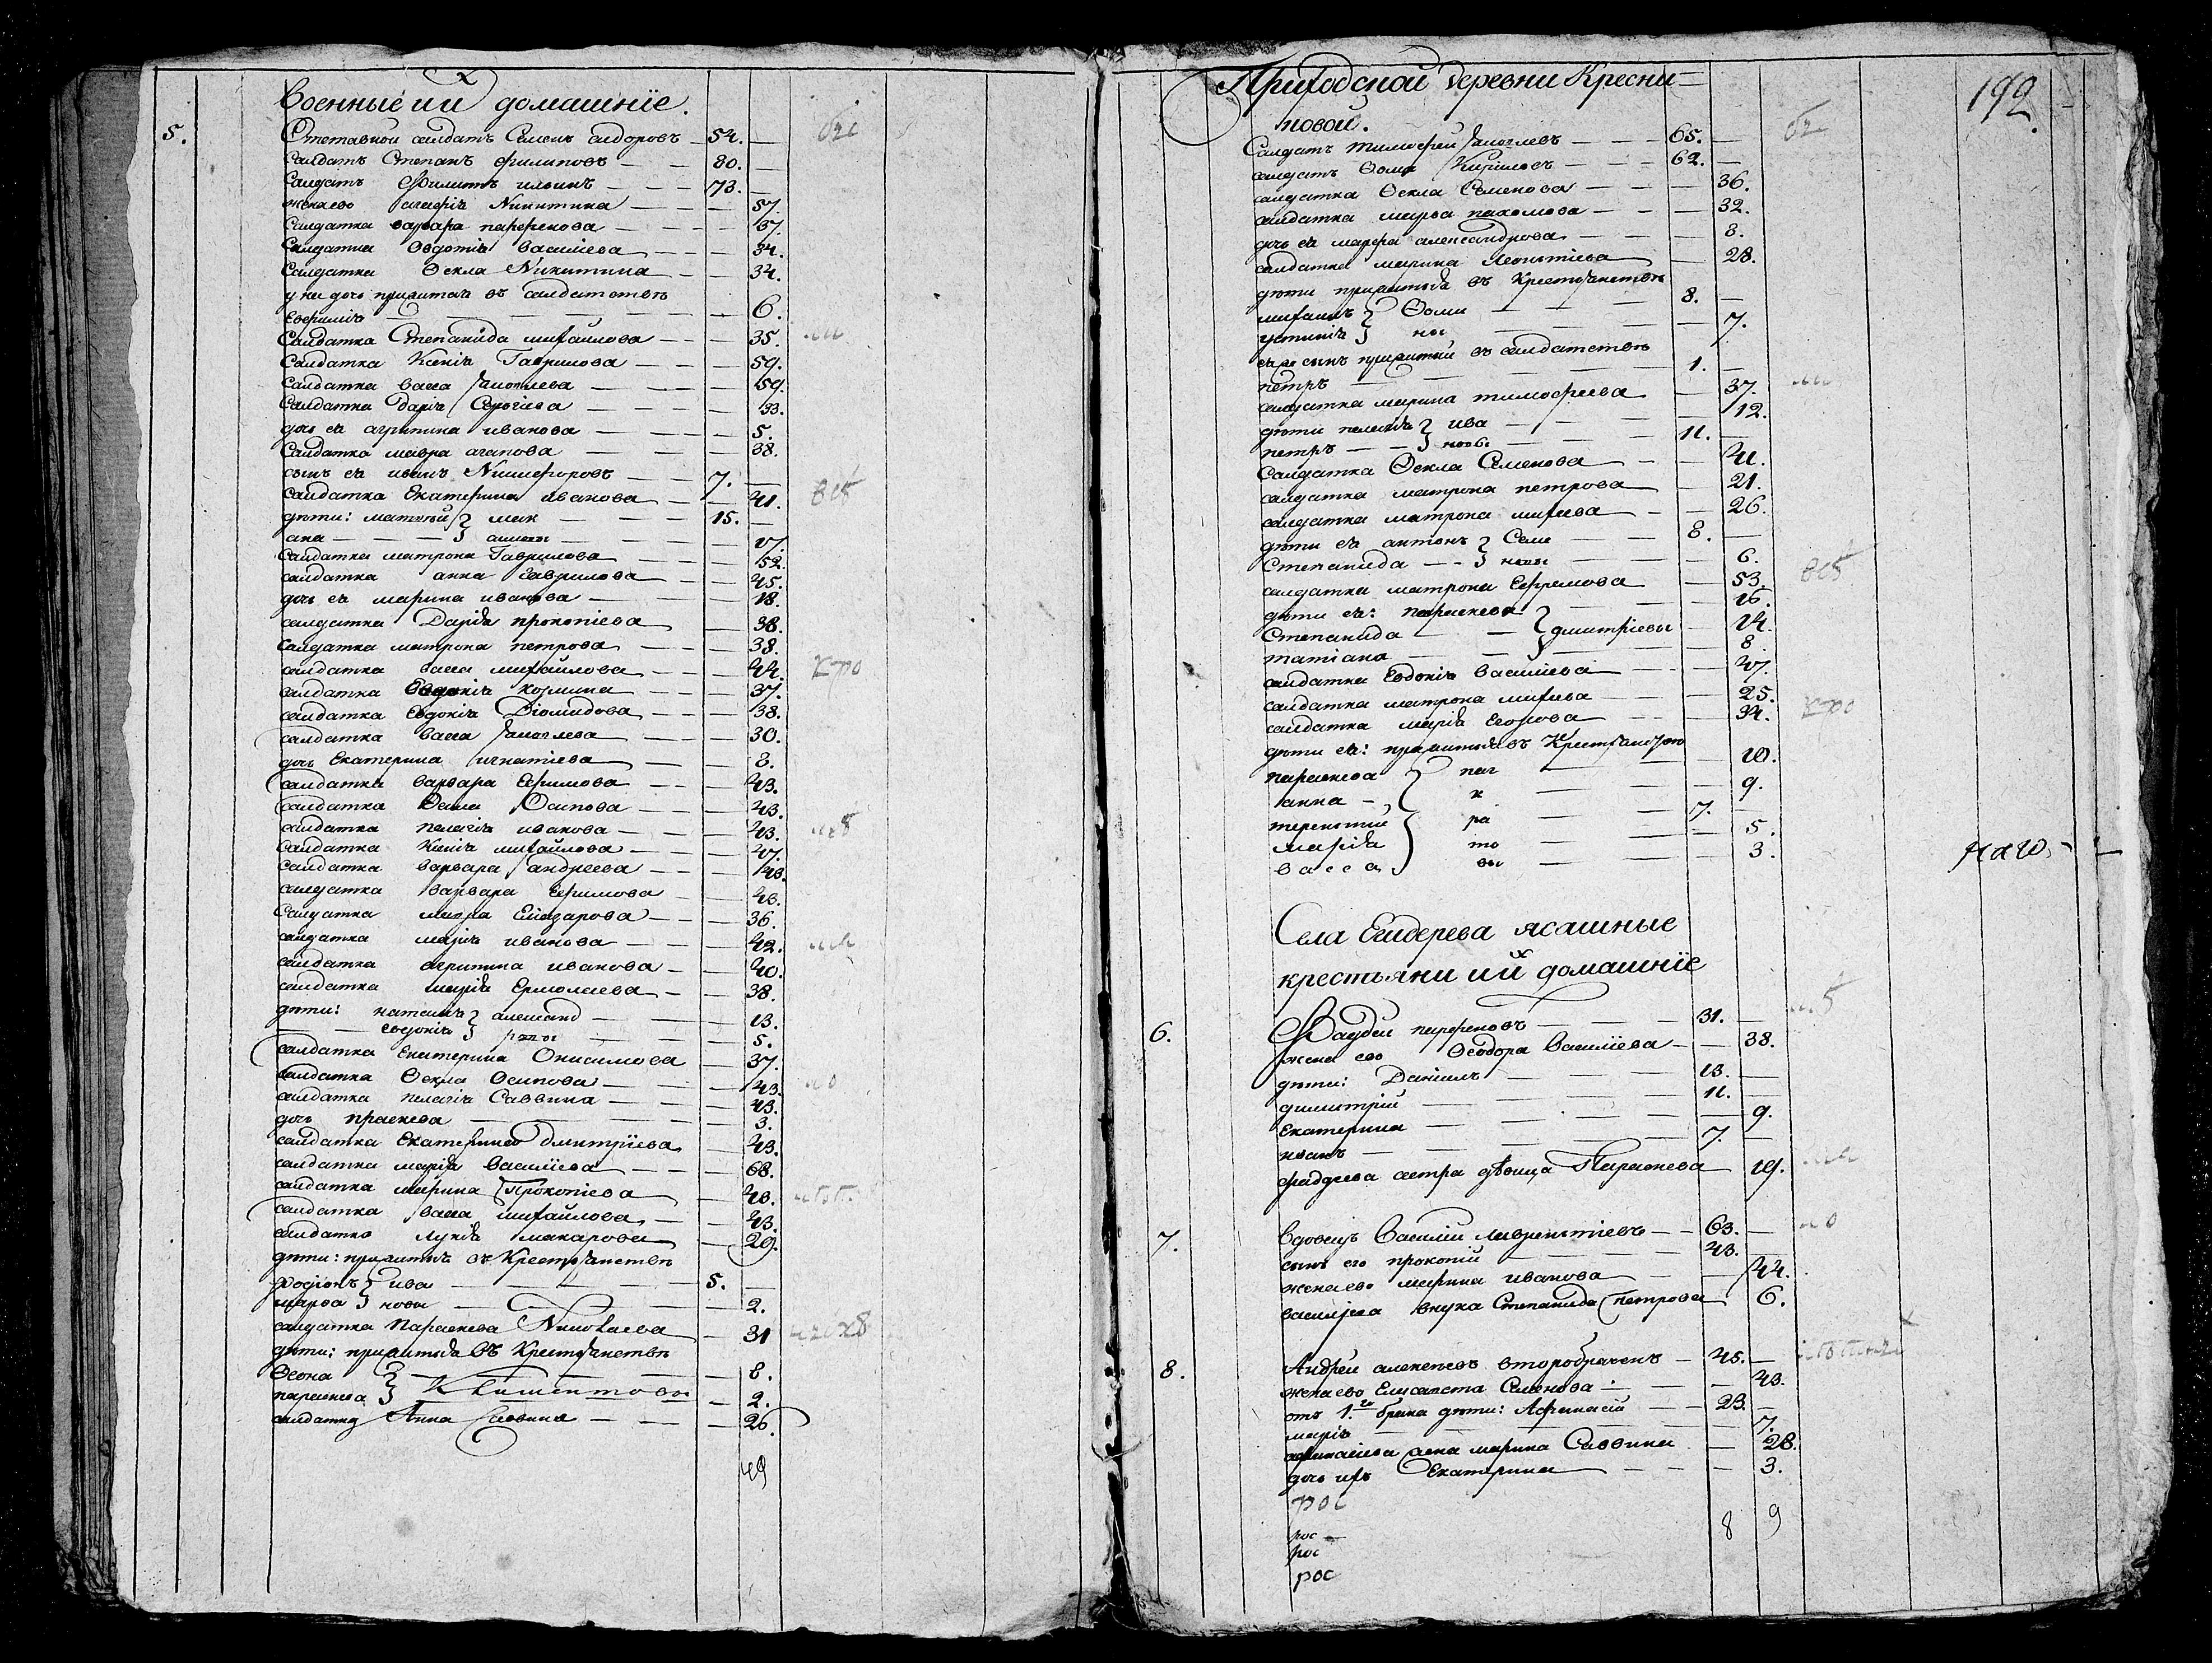 Военные и их домашніе.
5. Отставной салдатъ Семенъ андоровъ 54.
Салдатъ Степанъ Филиповъ 80.
Салдатъ Филипъ ильинъ 73.
жена ево агафіа Никитина 57.
Салдатка варвара парфенова 37.
Салдатка Овдотіа Василіева 34.
Салдатка Ѳекла Никитина 34.
у ней дочь прижитая въ салдатствѣ
Евфиміа 6.
Салдатка Степанида михайлова 35.
Салдатка Ксеніа Гаврилова 59.
Салдатка васса яковлева 59.
Салдатка даріа Сергіева 33.
дочь ея агрипина иванова 5.
Салдатка мавра агапова 38.
сынъ ея иванъ Никифоровъ 7.
салдатка Екатерина иванова 41.
дѣти: матѳей мак 15.
ана симовы 17.
Салдатка матрона Гаврилова 52.
салдатка анна Гаврилова 45.
дочь ея марина иванова 18.
салдатка Даріа прокопіева 38.
салдатка матрона петрова 38.
салдатка васса михайлова 44.
салдатка Евдокіа козмина 37.
салдатка Евдокіа Діомидова 38.
салдатка васса яковлева 30.
дочь Екатерина игнатіева 8.
салдатка варвара Ефимова 43.
салдатка Ѳекла Осипова 43.
салдатка пелагіа иванова 43.
салдатка Ксеніа михайлова 47.
салдатка варвара андреева 43.
салдатка варвара Ефимова 43.
Салдатка мавра Елиазарова 36.
салдатка маріа иванова 42.
салдатка агрипина иванова 40.
салдатка маріа Ермолаева 38.
дѣти: наталиа александ 13.
евдокіа ровы 5.
салдатка Екатерина Онисимова 37.
салдатка Ѳекла Осипова 43.
салдатка пелагіа Саввина 43.
дочь праскева 3.
салдатка Екатерина дмитріева 43.
салдатка маріа василіева 68.
салдатка марина Прокопіева 40.
салдатка васса михайлова 43.
салдатка Лукіа макарова 29.
дѣти: прижитые въ Крестьянствѣ
родіонъ ива 5.
марѳа новы 2.
салдатка Параскева Николаева 31
дѣти: прижитыя въ Крестьянствѣ
Ѳеона 8.
параскева Климентовы 2.
салдатка Анна Саввина 26.
49
Приходской деревни Красни=
новой.
192
Салдатъ тимофей яковлевъ 65.
салдатъ Ѳома Кириловъ 62.
салдатка Ѳекла Семенова 36.
салдатка марѳа пахомова 32.
дочь ея марфа александрова 8.
салдатка марина Леонтіева 28.
дѣти прижитыя въ Крестьянствѣ
михаилъ Ѳоми 8.
устиніа ны 7.
ея же сынъ прижитый въ салдатствѣ
петръ 1.
салдатка марина тимофеева 37.
дѣти пелагіа ива 12.
петръ новы 11.
Салдатка Ѳекла Семенова 41.
салдатка матрона петрова 21.
салдатка матрона михеева 26.
дѣти ея антонъ Семе 8.
Степанида новы 6.
салдатка матрона Ефремова 53.
дѣти ея: параскева 16.
Степанида дмитріевы 14.
татіана 8
салдатка Евдокіа Василіева 47.
салдатка матрона михеева 25.
салдатка маріа Егорова 34.
дѣти ея: прижитыя въ Крестьянствѣ
параскева пан 10.
анна к 9.
терентій ра 7.
маріа то 5.
васса вы 3.
Села Елдерева ясашные
крестьяни и их домашніе
6. Фаддей парфеновъ 31.
жена ево Ѳеодора Василіева 38.
дѣти: Даніилъ 13.
димитрій 11.
Екатерина 9.
иванъ 7.
фаддеева сестра дѣвица Параскева 19.
7. Вдовецъ Василій лаврентіевъ 63.
сынъ его прокопій 43.
жена ево марина иванова 44.
васильева внука Степанида Петрова 6.
8. Андрей алексеевъ второбраченъ 45.
жена ево Елисавета Семенова 43.
отъ 1.го брака дѣти: Афанасій 23.
маріа 7.
афанасіева жена марина Саввина 28.
дочь ихъ Екатерина 3.
рос
8 9
рос
рос
рос